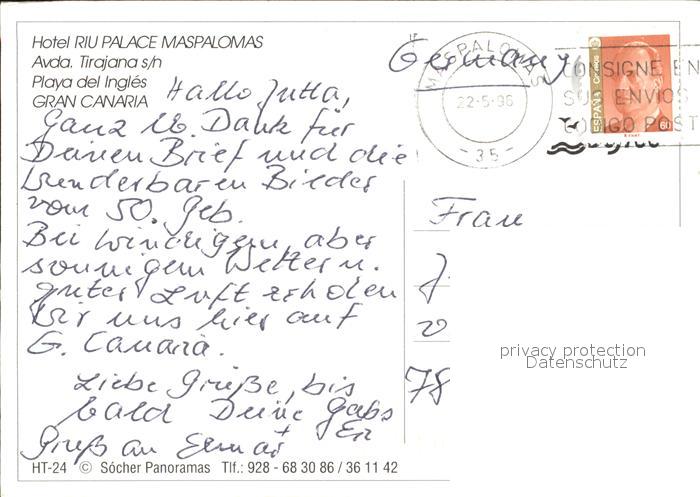 Hotel RIU PALACE MASPALOMAS
Avda. Tirajana s/n
Playa del Inglés
GRAN CANARIA
Hallo Jutta,
Ganz lb. Dank für
Deinen Brief und die
wunderbaren Bilder
vom 50. Geb.
Bei windigem, aber
sonnigem Wetter u.
guter Luft erholen
wir uns hier auf
G. Canaria.
Liebe Grüße, bis
bald Deine Gabs
Gruß an
HT-24 © Sócher Panoramas Tlf.: 928 - 68 30 86 / 36 11 42
Germany
MASPALOMAS
22-5-96
- 35 -
CONSIGNE EN
SUS ENVIOS
CODIGO POST
ESPAÑA Correos
60
Frau
J
v
78
privacy protection
Datenschutz